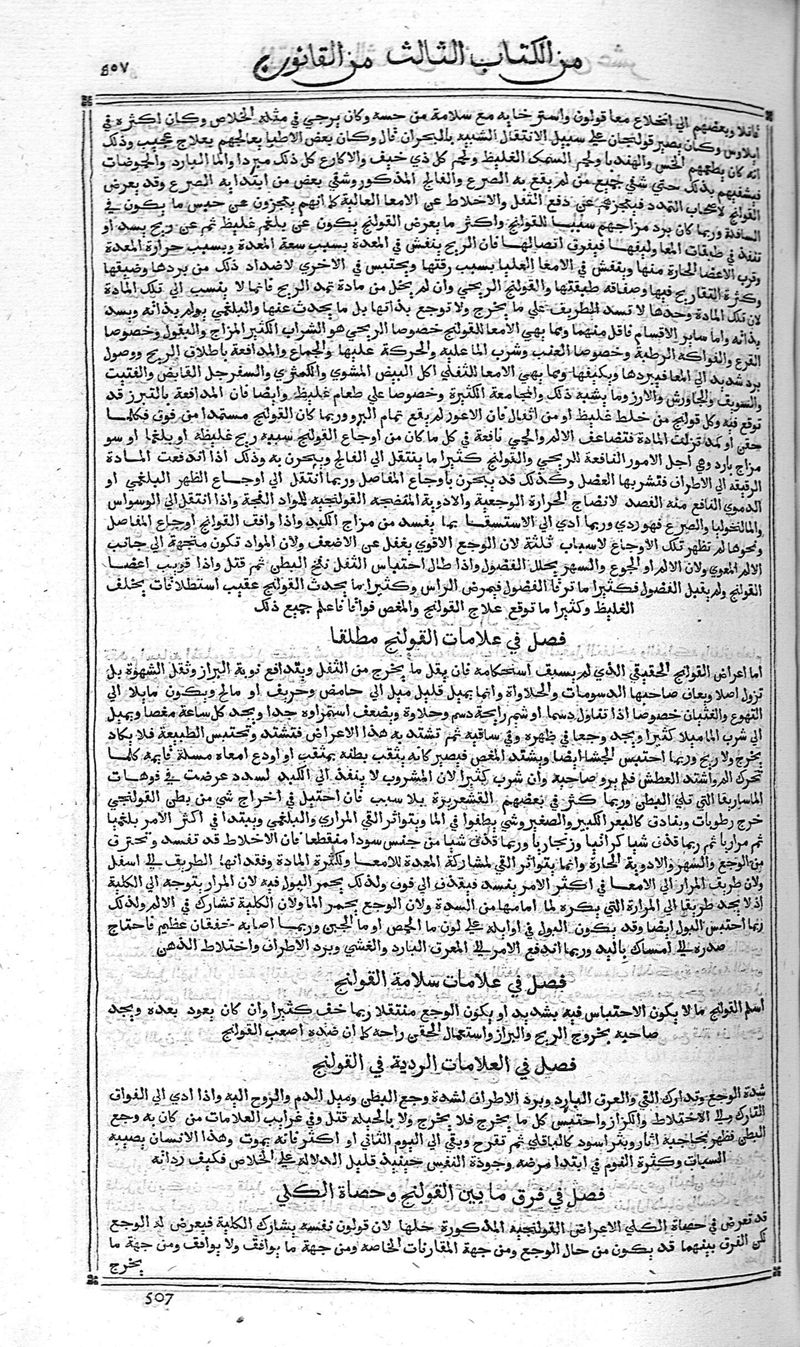 من الكتاب الثالث من القانون
٥٠٧
قاتلا وبعضهم الي انخلاع معا قولون واسترخايه مع سلامة من حسه وكان يرجي في مثله الخلاص وكان اكثره في
ايلاوس وكان يصير قولنجان علي سبيل الانتقال الشبيه بالبحران قال وكان بعض الاطبا يعالجهم بعلاج عجيب وذلك
انه كان يطعمهم الخس والهندبا ولحم السمك الغليظ ولحم كل ذي خف والاكارع كل ذلك مبردا والما البارد والحموضات
فيشفيهم بذلك حتي شفي جميع من لم يقع به الصرع والفالج المذكور وشفي بعض من ابتدا به الصرع وقد يعرض
القولنج لاصحاب التمدد فيعجزهم عن دفع الثفل والاخلاط عن الامعا العالية كما انهم يعجزون عن حبس ما يكون في
السافلة وربما كان برد مزاجهم سببا للقولنج واكثر ما يعرض القولنج يكون عن بلغم غليظ ثم عن ريح يسد او
تنفذ في طبقات المعا وليفها فيفرق اتصالها فان الريح ينفش في المعدة بسبب سعة المعدة وبسبب حرارة المعدة
وقرب الاعضا الحارة منها وينفش في الامعا العليا بسبب رقتها ويحتبس في الاخري لاضداد ذلك من بردها وضيقها
وكثرة التعاريج فيها وصفاقة طبقتها والقولنج الريحي وان لم يخل من مادة تمد الريح فانما لا ينسب الي تلك المادة
لان تلك المادة وحدها لا تسد الطريق علي ما يخرج ولا توجع بذاتها بل ما يحدث عنها والبلغمي يولم بذاته ويسد
بذاته واما ساير الاقسام فاقل منهما ومما يهي الامعا للقولنج خصوصا الريحي هو الشراب الكثير المزاج والبقول وخصوصا
القرع والفواكه الرطبة وخصوصا العنب وشرب الما عليه والحركة عليها والجماع والمدافعة باطلاق الريح ووصول
برد شديد الي المعا فيبردها ويكثفها ومما يهي الامعا للثفلي اكل البيض المشوي والكمثري والسفرجل القابض والفتيت
والسويق والجاورش والارز وما يشبه ذلك والمجامعة الكثيرة وخصوصا علي طعام غليظ وايضا فان المدافعة بالتبرز قد
توقع فيه وكل قولنج من خلط غليظ او من اثفال فان الاعور لم يقع تمام البرو وربما كان القولنج مستمدا من فوق فكلما
حقن او كمد نزلت المادة فتضاعف الالم والحمي نافعة في كل ما كان من اوجاع القولنج سببه ريح غليظة او بلغما او سو
مزاج بارد وهي اجل الامور النافعة للريحي والقولنج كثيرا ما ينتقل الي الفالج ويبحرن به وذلك اذا اندفعت المادة
الرقيقة الي الاطراف فتشربها العضل وكذلك قد يبحرن باوجاع المفاصل وربما انتقل الي اوجاع الظهر البلغمي او
الدموي النافع منه الفصد لانضاج الحرارة الوجعية والادوية المنضجة القولنجية للمواد الفجة واذا انتقل الي الوسواس
والمالنخوليا والصرع فهو ردي وربما ادي الي الاستسقا بما يفسد من مزاج الكبد واذا وافق القولنج اوجاع المفاصل
ونحوها لم تظهر تلك الاوجاع لاسباب ثلثة لان الوجع الاقوي يغفل عن الاضعف ولان المواد تكون متجهة الي جانب
الالم المعوي ولان الالم او الجوع والسهر يحلل الفضول واذا طال احتباس الثفل نفخ البطن ثم قتل واذا قويت اعضا
القولنج ولم يقبل الفضول فكثيرا ما ترقا الفضول فيمرض الراس وكثيرا ما يحدث القولنج عقيب استطلاقات يخلف
الغليظ وكثيرا ما توقع علاج القولنج والمغص فواقا فاعلم جميع ذلك
فصل في علامات القولنج مطلقا
اما اعراض القولنج الحقيقي الذي لم يسبق استحكامه فان يقل ما يخرج من الثفل ويتدافع نوبة البراز وتقل الشهوة بل
تزول اصلا ويعاف صاحبها الدسومات والحلاوات وانما يميل قليل ميل الي حامض وحريف او مالح ويكون مايلا الي
التهوع والغثيان خصوصا اذا تناول دسما او شم رايحة دسم وحلاوة ويضعف استمراوه جدا ويجد كل ساعة مغصا ويميل
الي شرب الما ميلا كثيرا ويجد وجعا في ظهره وفي ساقيه ثم تشتد به هذا الاعراض فتشتد وتحتبس الطبيعة فلا يكاد
يخرج ولا ريح وربما احتبس الجشا ايضا ويشتد المغص فيصير كانه يثقب بطنه بمثقب او اودع امعاه مسلة قايمة كلما
تحرك الم واشتد العطش فلم يرو صاحبه وان شرب كثيرا لان المشروب لا ينفذ الي الكبد لسدد عرضت في فوهات
الماساريقا التي تلي البطن وربما كثر في بعضهم القشعريرة بلا سبب فان احتيل في اخراج شي من بطن القولنجي
خرج رطوبات وبنادق كالبعر الكبير والصغير وشي يطفوا في الما ويتواتر القي المراري والبلغمي ويبتدا في اكثر الامر بلغميا
ثم مراريا ثم ربما قذف شيا كراثيا وزنجاريا وربما قذف شيا من جنس سودا متقطعا فان الاخلاط قد تفسد وتحترق
من الوجع والسهر والادوية الحارة وانما يتواتر القي لمشاركة المعدة للامعا ولكثرة المادة وفقدانها الطريق الي اسفل
ولان طريق المرار الي الامعا في اكثر الامر يفسد فيقذف الي فوق ولذلك يحمر البول فيه لان المرار يتوجه الي الكلية
اذ لا يجد طريقا الي المرارة التي يكره لما امامها من السدة ولان الوجع يحمر الما ولان الكلية تشارك في الالم ولذلك
ربما احتبس البول ايضا وقد يكون البول في اوايله علي لون ما الحمص او ما الجبن وربما اصابه خفقان عظيم فاحتاج
صدره الي امساك باليد وربما اندفع الامر الي العرق البارد والغشي وبرد الاطراف واختلاط الذهن
فصل في علامات سلامة القولنج
اسلم القولنج ما لا يكون الاحتباس فيه بشديد او يكون الوجع منتقلا ربما خف كثيرا وان كان يعود بعده ويجد
صاحبه بخروج الريح والبراز واستعمال الحقن راحة كما ان ضده اصعب القولنج
فصل في العلامات الردية في القولنج
شدة الوجع وتدارك القي والعرق البارد وبرد الاطراف لشدة وجع البطن وميل الدم والروح اليه واذا ادي الي الفواق
المتدارك والي الاختلاط والكزاز واحتبس كل ما يخرج فلا يخرج ولا بالحيلة قتل وفي غرايب العلامات من كان به وجع
البطن فظهر بحاجبه اثار وبثر اسود كالباقلي ثم تقرح وبقي الي اليوم الثاني او اكثر فانه يموت وهذا الانسان يصيبه
السبات وكثرة النوم في ابتدا مرضه وجودة النفس حينيذ قليل الدلالة علي الخلاص فكيف ردانه
فصل في فرق ما بين القولنج وحصاة الكلي
قد تعرض في حصاة الكلي الاعراض القولنجيه المذكورة جلها لان قولون نفسه يشارك الكلية فيعرض له الوجع
لكن الفرق بينهما قد يكون من حال الوجع ومن جهة المقارنات الخاصه ومن جهة ما يوافق ولا يوافق ومن جهة ما
يخرج
507